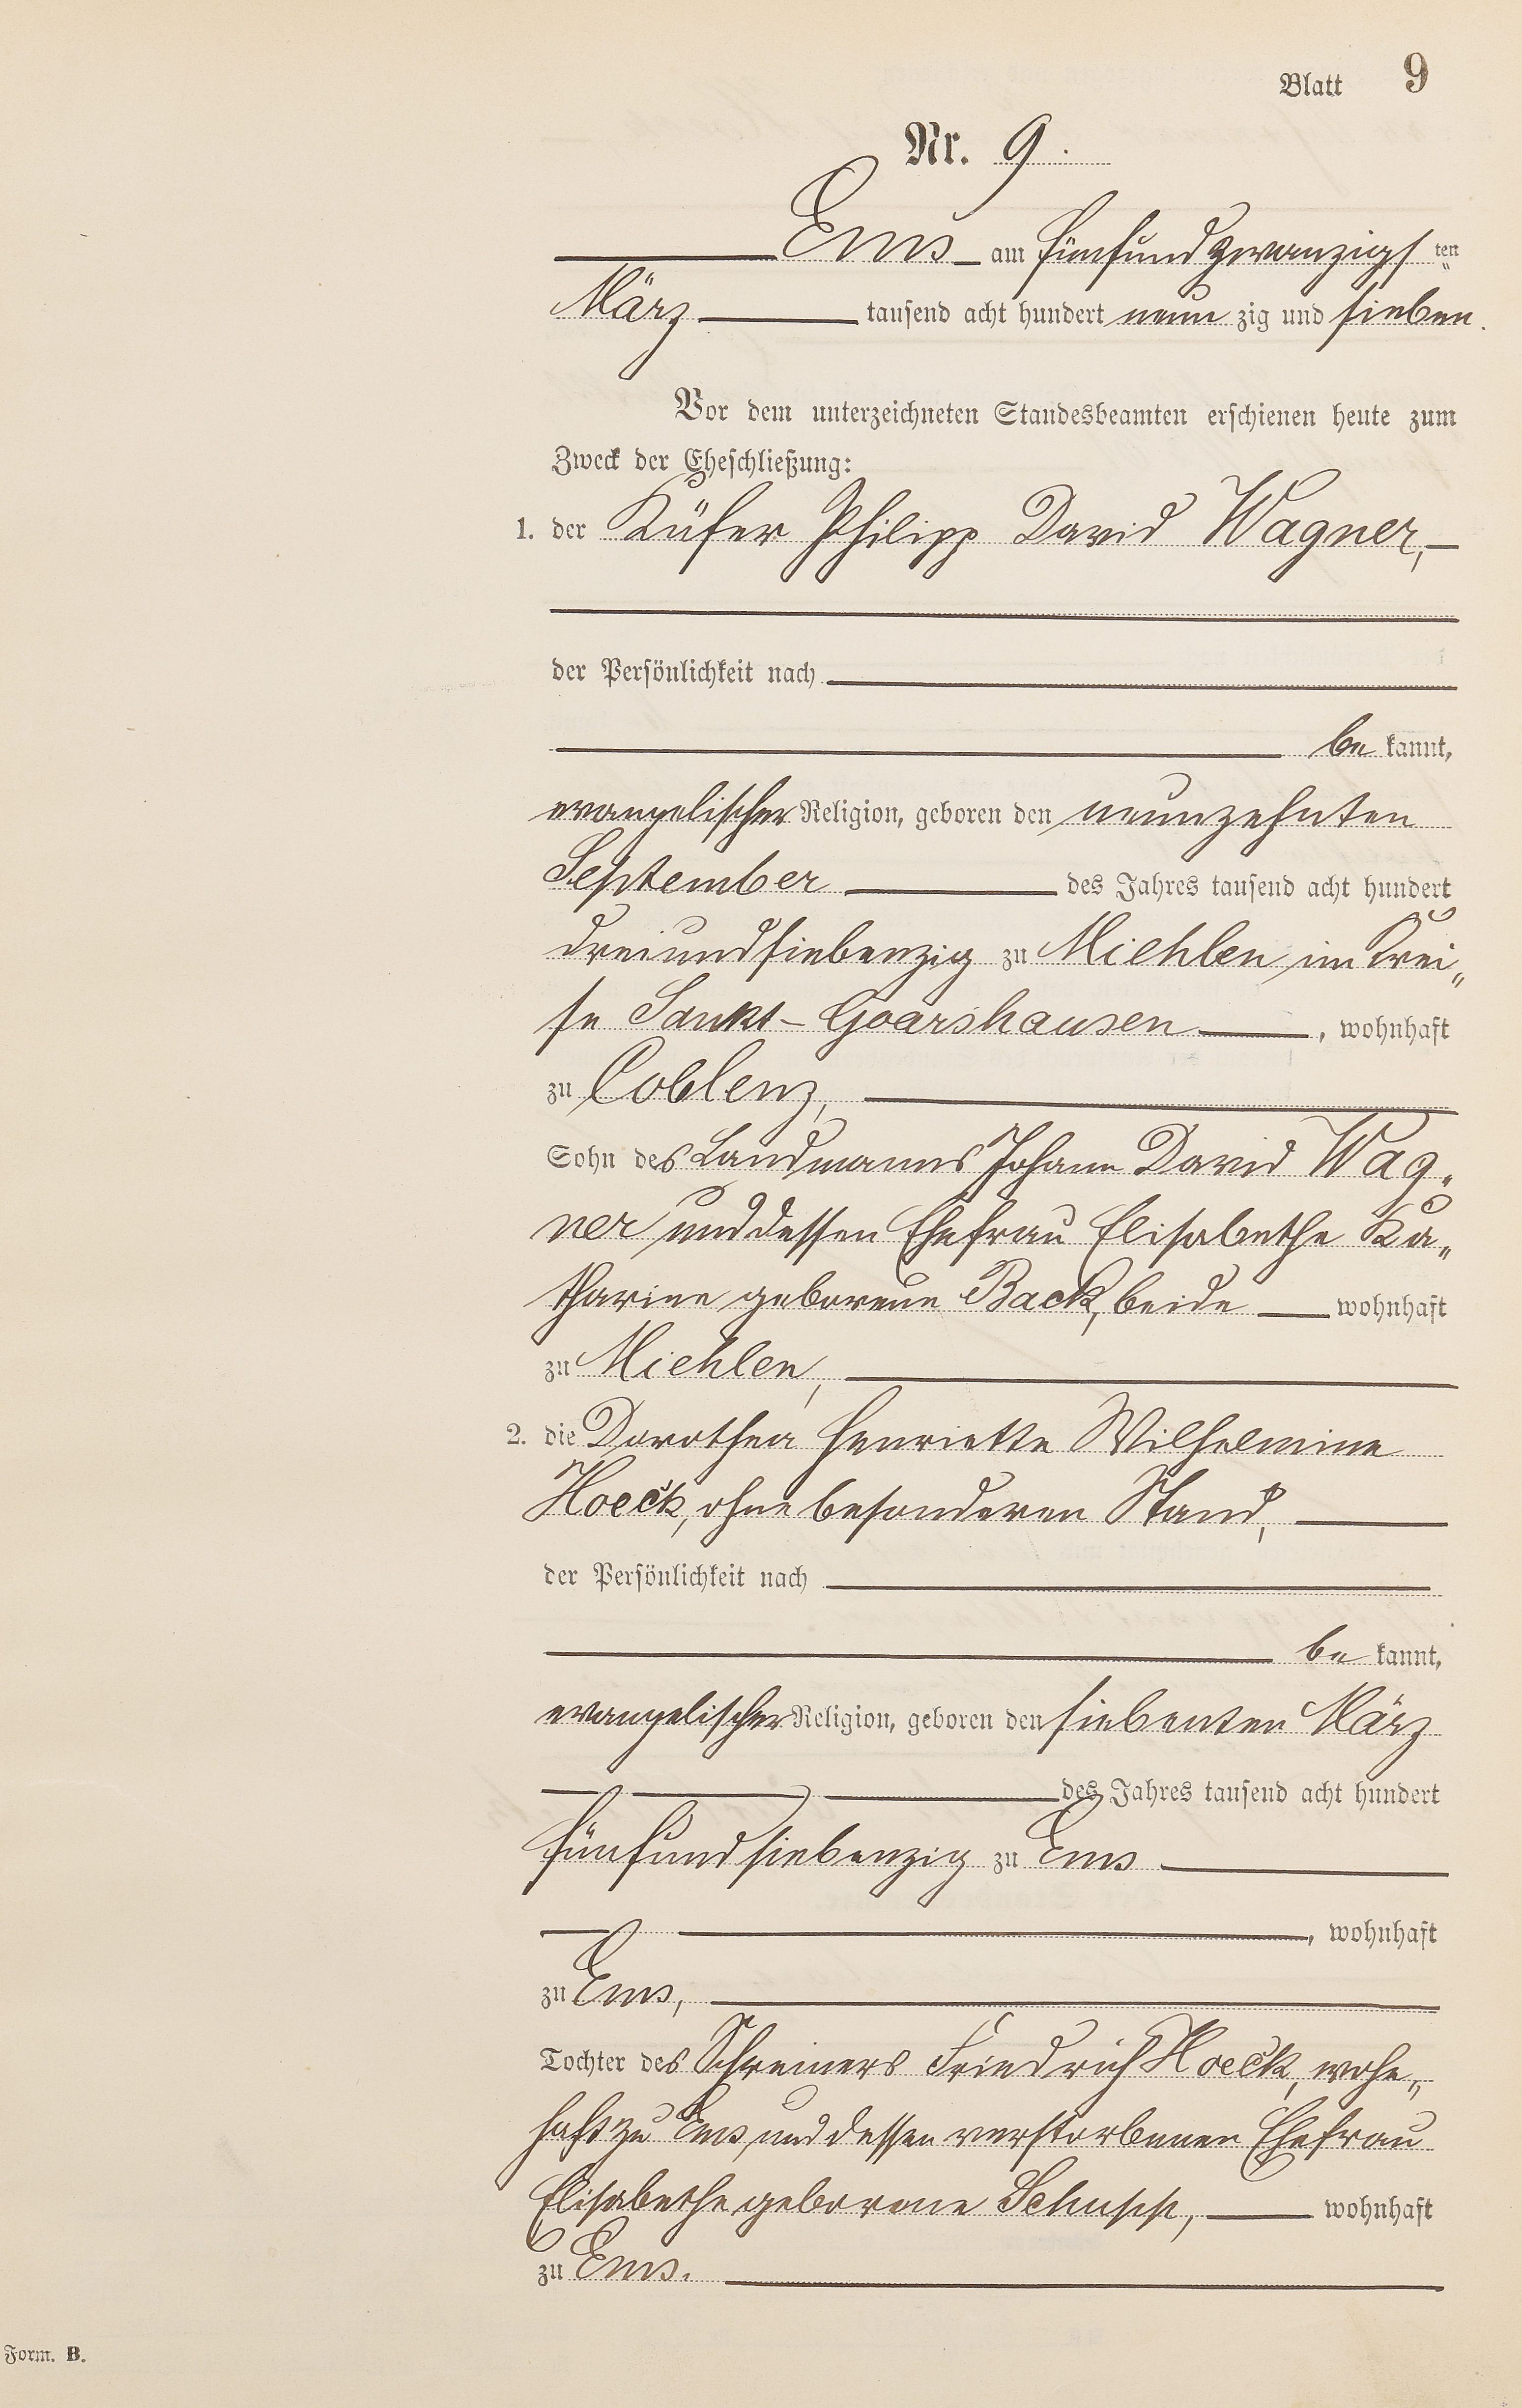 Blatt 9
Nr. 9.
Ems am fünfundzwanzigsten
März tausend acht hundert neun zig und sieben.
Vor dem unterzeichneten Standesbeamten erschienen heute zum
Zweck der Eheschließung:
1. der Küfer Philipp David Wagner,
der Persönlichkeit nach
be kannt,
evangelischer Religion, geboren den neunzehnten
September des Jahres tausend acht hundert
dreiundsiebenzig zu Miehlen im Krei„
se Sankt-Goarshausen, wohnhaft
zu Coblenz,
Sohn des Landmanns Johann David Wag„
ner und dessen Ehefrau Elisabethe Ka„
tharine geborene Back, beide wohnhaft
zu Miehlen,
2. die Dorothea Henriette Wilhelmine
Hoeck, ohne besonderen Stand,
der Persönlichkeit nach
be kannt,
evangelischer Religion, geboren den siebenten März
des Jahres tausend acht hundert
fünfundsiebenzig zu Ems
, wohnhaft
zu Ems,
Tochter des Schreiners Friedrich Hoeck, wohn„
haft zu Ems, und dessen verstorbenen Ehefrau
Elisabethe geborene Schupp, wohnhaft
zu Ems.
Form. B.